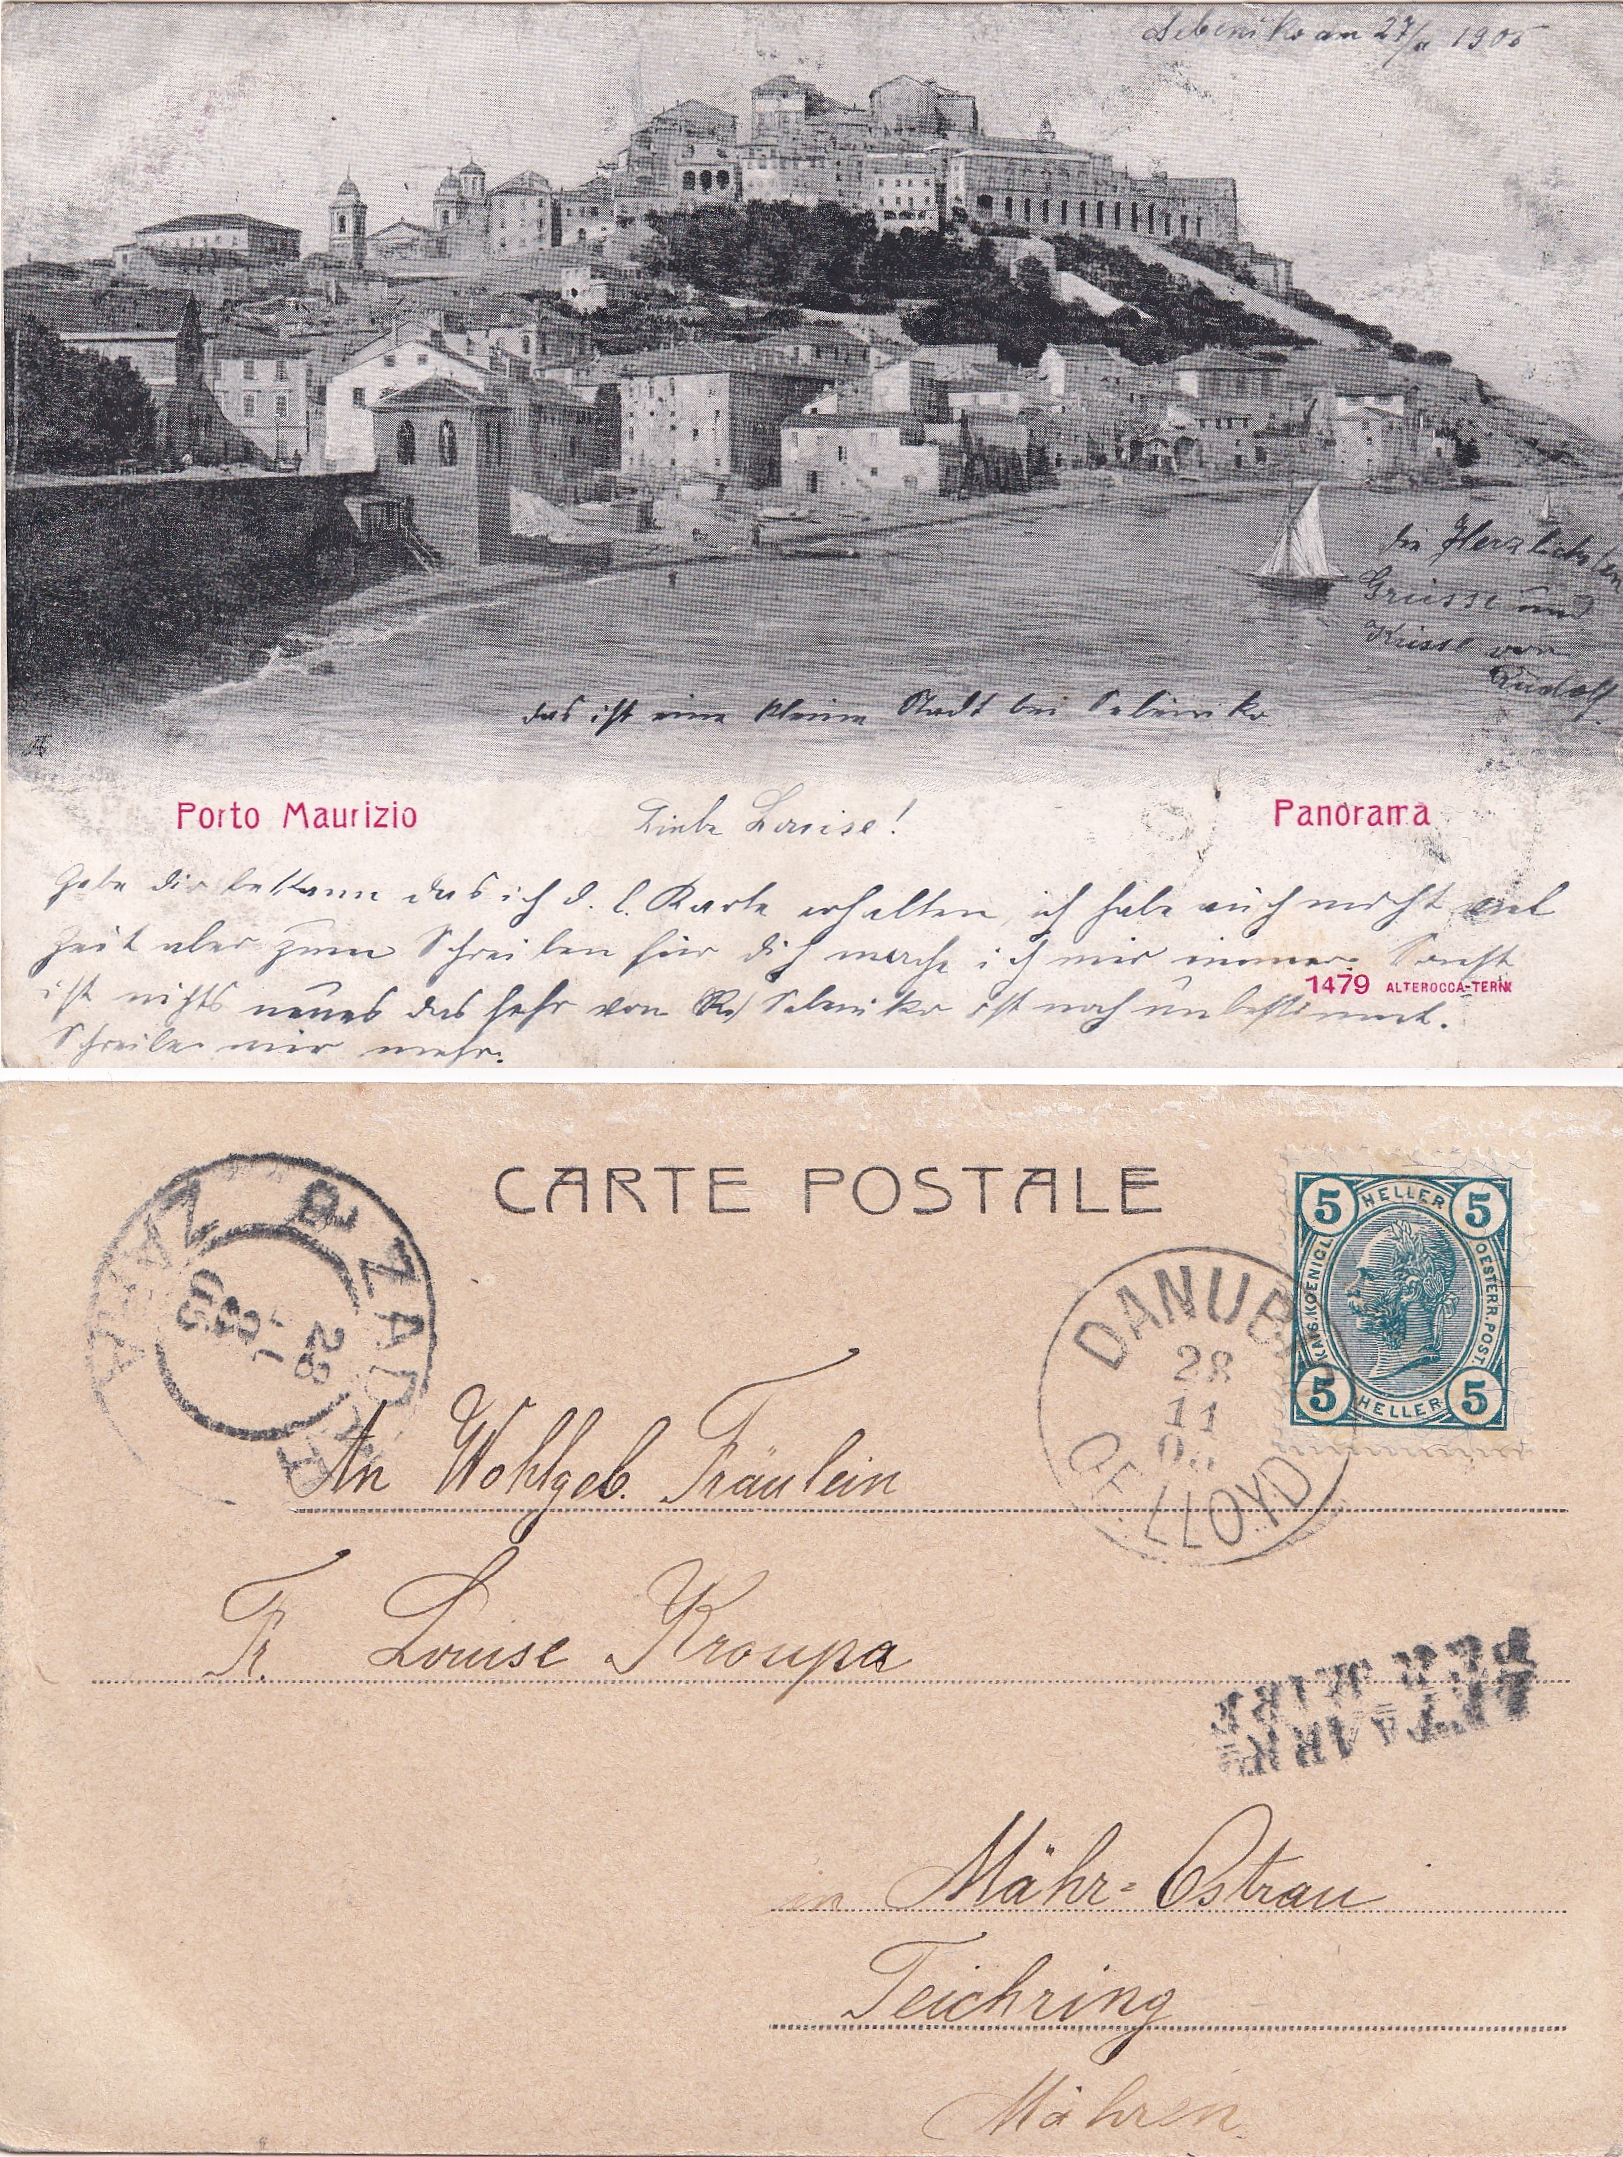 Sebeniko am 27/11 1905
die Herzlichsten
Grüsse und
Küsse von
Rudolf
das ist eine kleine Stadt bei Sebeniko
Porto Maurizio
Panorama
Liebe Louise!
Gebe dir bekann das ich d. l. Karte erhalten, ich habe auch nicht viel
Zeit aber zum Schreiben für dich mache ich mir immer. Sonst
ist nichts neues das von Sebeniko ist noch unbestimmt.
Schreibe mir mehr.
1479 ALTEROCCA-TERNI
CARTE POSTALE
ZARA
ZADAR
28
05
DANUB
28
11
OE. LLOYD
5 HELLER 5
KAIS. KOENIGL. OESTERR. POST.
5 HELLER 5
An Wohlgeb. Fräulein
Fr. Louise Kroupa
PER MARE
in Mähr-Ostrau
Teichring
Mähren